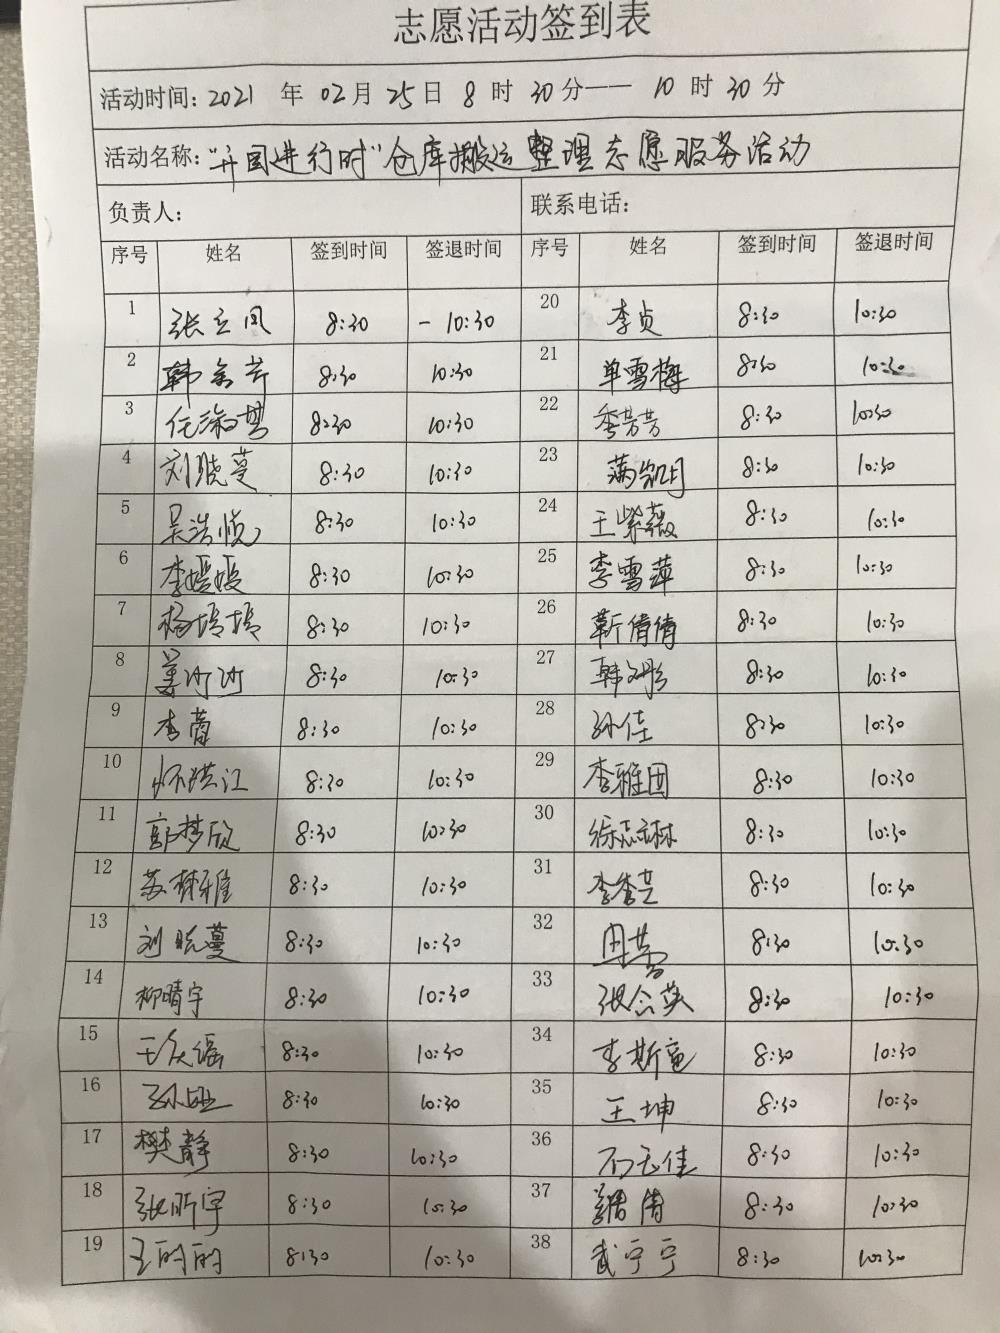 志愿活动签到表
活动时间: 2021 年 02月 25日 8 时 30分—— 10 时 30分
活动名称:"开国进行时"仓库搬运整理志愿服务活动
负责人: 联系电话:
序号 姓名 签到时间 签退时间 序号 姓名 签到时间 签退时间
1 张立凤 8:30 - 10:30 20 李贞 8:30 10:30
2 8:30 10:30 21 单雪梅 8:30 10:30
3 8:30 10:30 22 李芳芳 8:30 10:30
4 刘晓蔓 8:30 10:30 23 满凯月 8:30 10:30
5 吴浩悦 8:30 10:30 24 王紫薇 8:30 10:30
6 李媛媛 8:30 10:30 25 李雪萍 8:30 10:30
7 杨培培 8:30 10:30 26 靳倩倩 8:30 10:30
8 姜沙沙 8:30 10:30 27 韩文彤 8:30 10:30
9 李蕾 8:30 10:30 28 孙佳 8:30 10:30
10 怀洪江 8:30 10:30 29 李雅团 8:30 10:30
11 郭梦欣 8:30 10:30 30 8:30 10:30
12 苏梦雅 8:30 10:30 31 8:30 10:30
13 刘晓蔓 8:30 10:30 32 周莺 8:30 10:30
14 柳晴宇 8:30 10:30 33 张念英 8:30 10:30
15 8:30 10:30 34 李斯童 8:30 10:30
16 8:30 10:30 35 王坤 8:30 10:30
17 樊静 8:30 10:30 36 石云佳 8:30 10:30
18 张昕宇 8:30 10:30 37 8:30 10:30
19 王的的 8:30 10:30 38 武宁宁 8:30 10:30